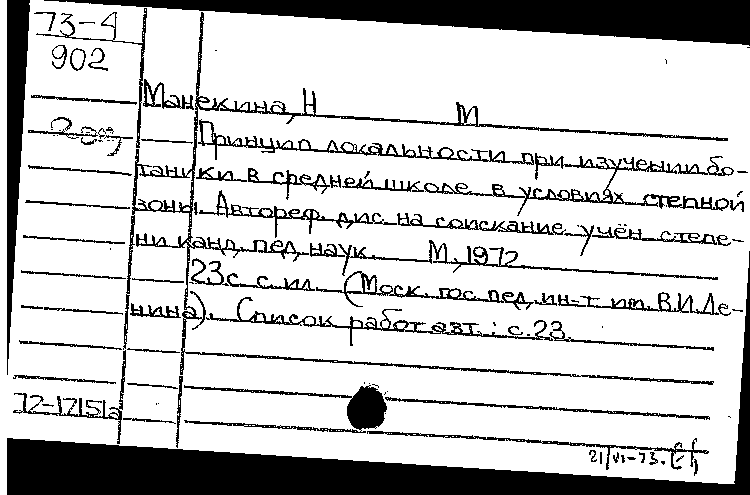 73-4
902
Манекина, Н М
2 экз
Принцип локальности при изучении бо-
таники в средней школе в условиях степной
зоны. Автореф. дис. на соискание учён. степе-
ни канд. пед. наук. М., 1972.
23 с. с ил. (Моск. гос. пед. ин-т им. В.И. Ле-
нина). Список работ авт.: с. 23.
72-17151а
21/VI-73.